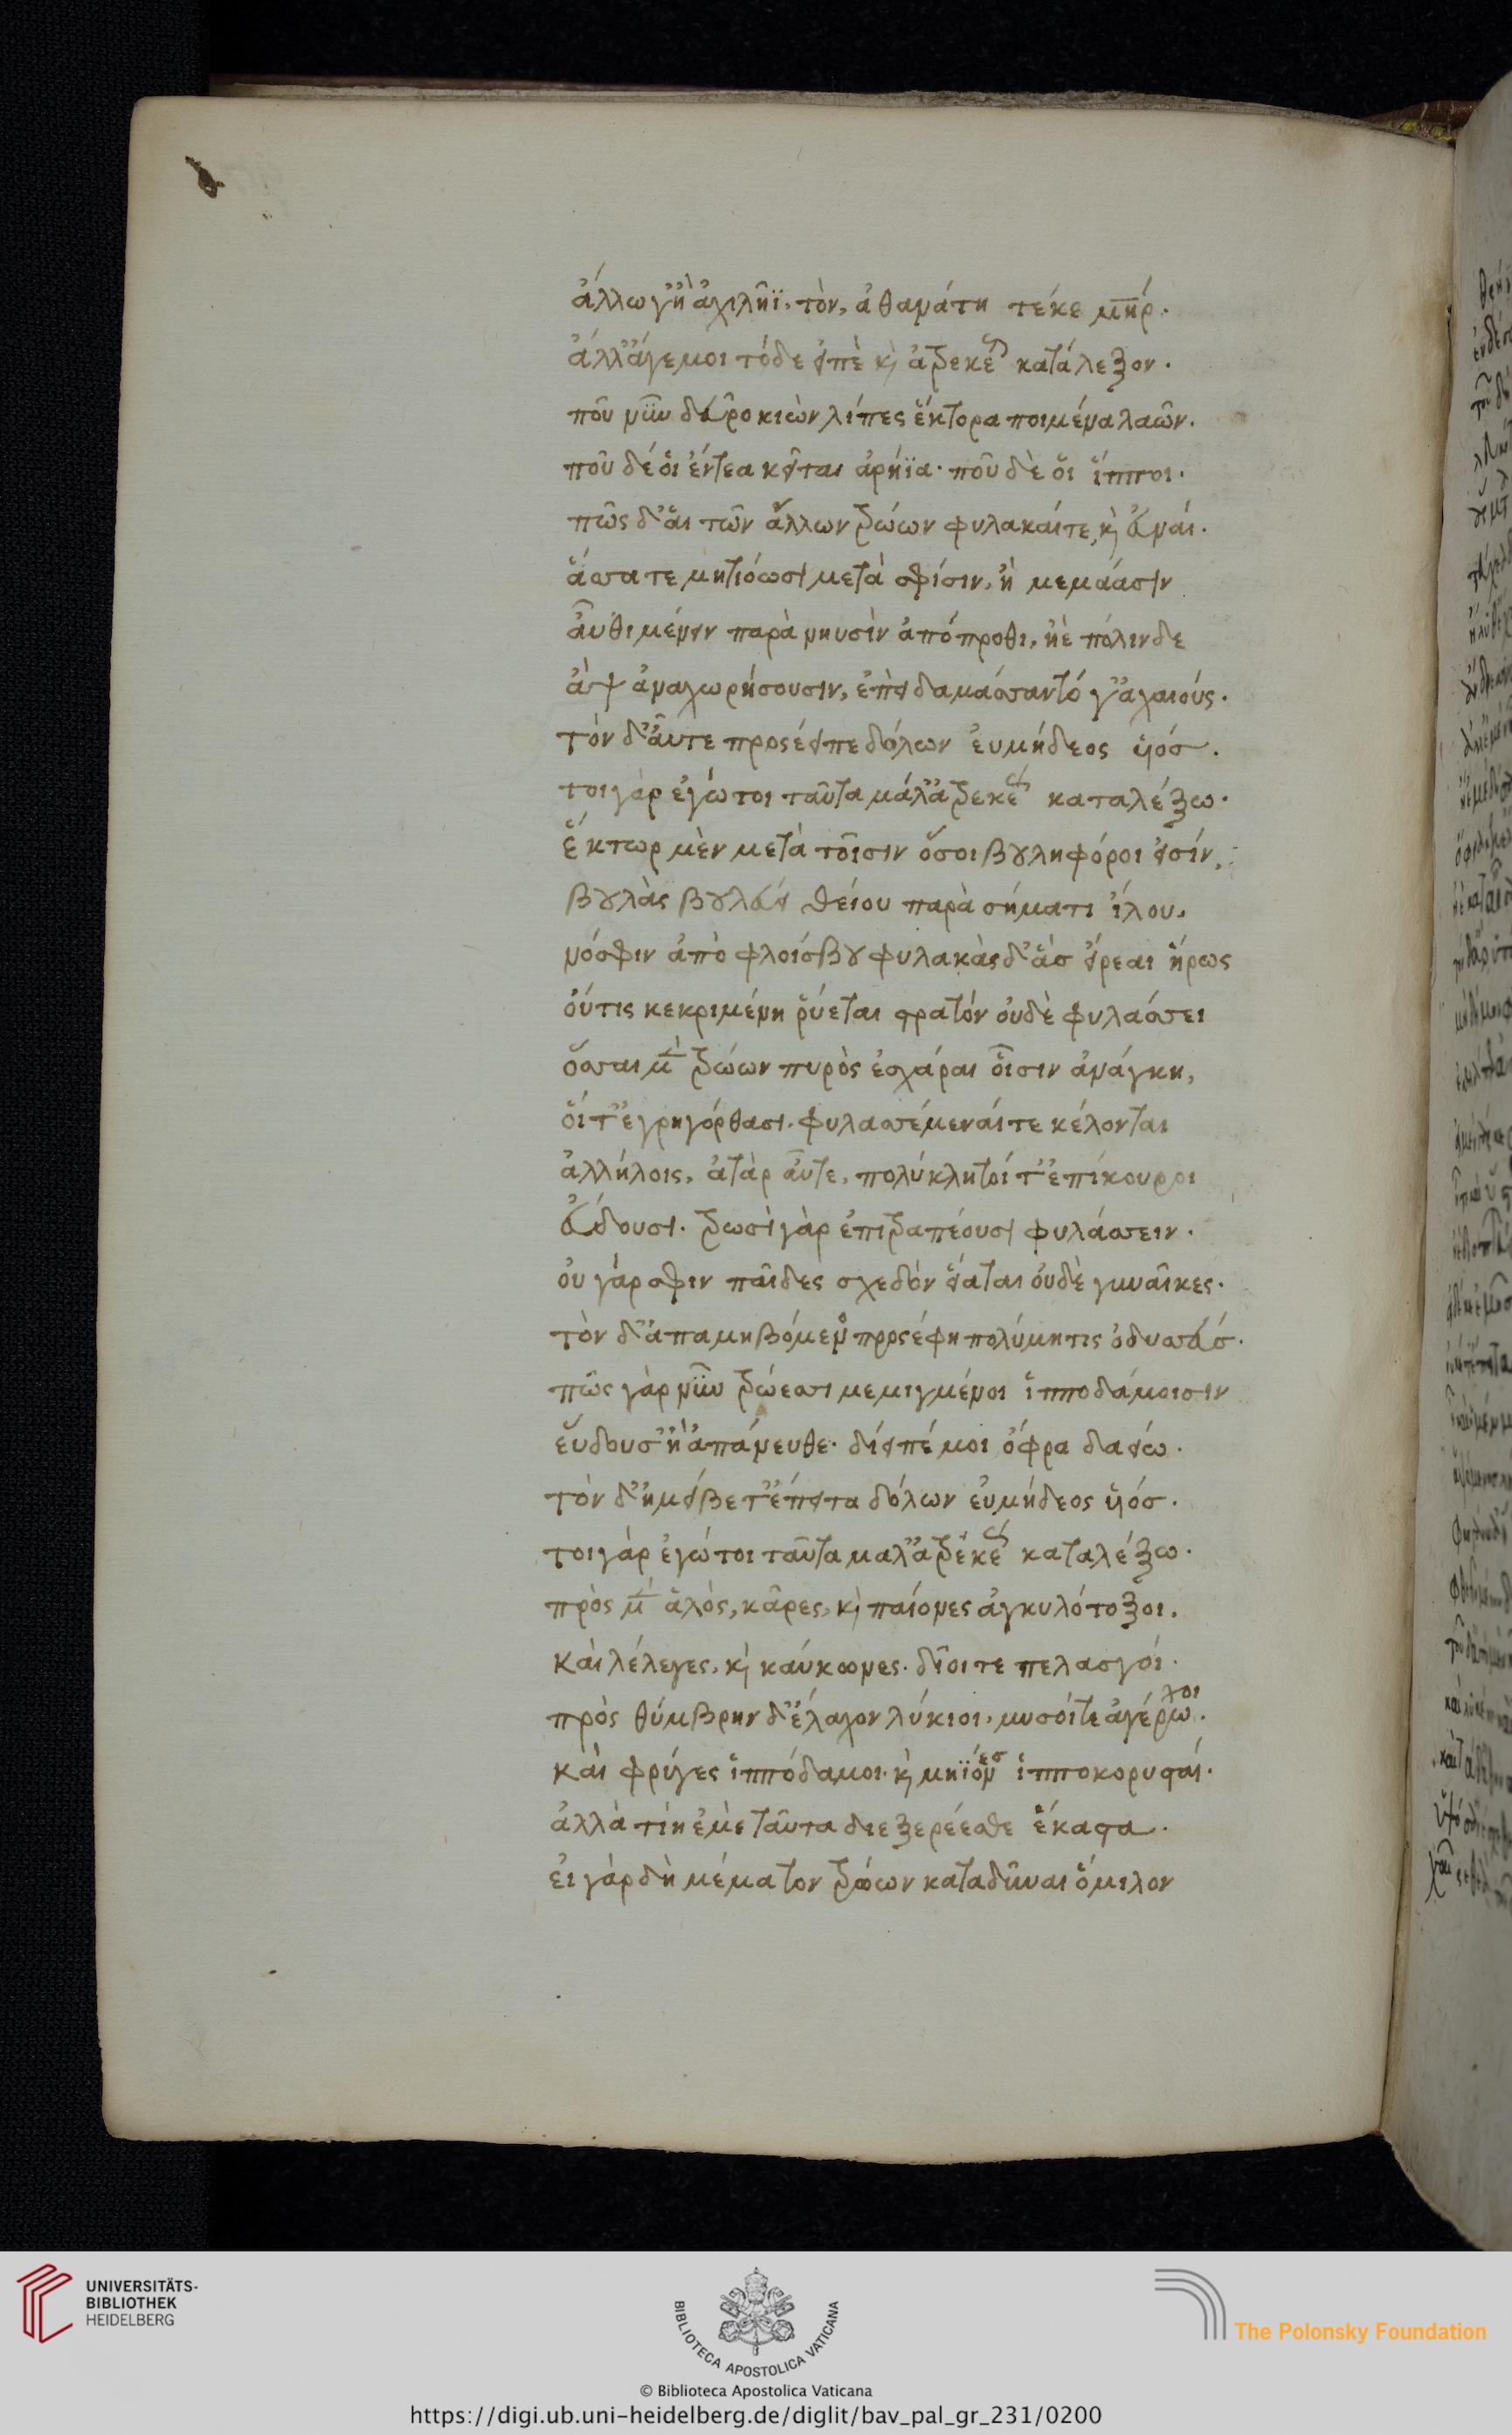 ἄλλω γ' ἢ ἀχιλῆϊ, τὸν, ἀθανάτη τέκε μηρ.
ἀλλ' ἄγε μοι τόδε εἰπὲ κὶ ἀτρεκέως κατάλεξον.
ποῦ νῦν δεῦρο κιὼν λίπες ἕκτορα ποιμένα λαῶν.
ποῦ δέ ὅι ἔντεα κεῖται ἀρήϊα. ποῦ δὲ ὅι ἵπποι.
πῶς δ' ἅι τῶν ἄλλων τρώων φυλακαίτε, κὶ εὐναί.
ἅσσα τε μητιόωσι μετὰ σφίσιν, ἢ μεμάασιν
ἆυθι μένειν παρὰ νηυσὶν ἀπόπροθι, ἠὲ πόλινδε
ἂψ ἀναχωρήσουσιν, ἐπεὶ δαμάσσαντό γ' ἀχαιούς.
τὸν δ' ἆυτε προςέειπε δόλων ἐυμήδεος υἱόσ.
τοιγὰρ ἐγώ τοι ταῦτα μάλ' ἀτρεκέως καταλέξω.
ἕκτωρ μὲν μετὰ τοῖσιν ὅσοι βȣληφόροι εἰσίν,
βȣλὰς βȣλεύει θείου παρὰ σήματι ἴλου,
νόσφιν ἀπὸ φλοίσβȣ φυλακὰς δ' ἃσ εἴρεαι ἥρως
ὄυτις κεκριμένη ῥύεται στρατόν ὀυδὲ φυλάσσει
ὅσσαι μὲν τρώων πυρὸς ἐσχάραι ὅισιν ἀνάγκη,
ὅι τ' ἐγρηγόρθασι. φυλασσέμεναί τε κέλονται
ἀλλήλοις, ἀτὰρ ἆυτε, πολύκλητοί τ' ἐπίκουροι
εὕδουσι. τρωσὶ γὰρ ἐπιτραπέουσι φυλάσσειν.
ὀυ γάρ σφιν παῖδες σχεδὸν εἵαται ὀυδὲ γυναῖκες.
τὸν δ' ἀπαμηβόμενος προςέφη πολύμητις ὀδυσσεύσ.
πῶς γὰρ νῦν τρώεσσι μεμιγμένοι ἱπποδάμοισιν
εὕδουσ' ἢ ἀπάνευθε. δίειπέ μοι ὄφρα δαείω.
τὸν δ' ἠμείβετ' ἔπειτα δόλων ἐυμήδεος υἱόσ.
τοιγὰρ ἐγώ τοι ταῦτα μαλ' ἀτρέκέως καταλέξω.
πρὸς μὲν ἁλὸς, κᾶρες, κὶ παίονες ἀγκυλότοξοι.
Καὶ λέλεγες, κὶ καύκωνες. δῖοι τε πελασγοί.
πρὸς θύμβρην δ' ἔλαχον λύκιοι, μυσοί τε ἀγέρωχοι.
Καὶ φρύγες ἱππόδαμοι. κὶ μηϊόνεσ ἱπποκορυσταί.
ἀλλὰ τίη ἐμὲ ταῦτα διεξερέεσθε ἕκαστα.
ἐι γὰρ δὴ μέματον τρώων καταδῦναι ὅμιλον
UNIVERSITÄTS-
BIBLIOTHEK
HEIDELBERG
BIBLIOTECA APOSTOLICA VATICANA
The Polonsky Foundation
© Biblioteca Apostolica Vaticana
https://digi.ub.uni-heidelberg.de/diglit/bav_pal_gr_231/0200